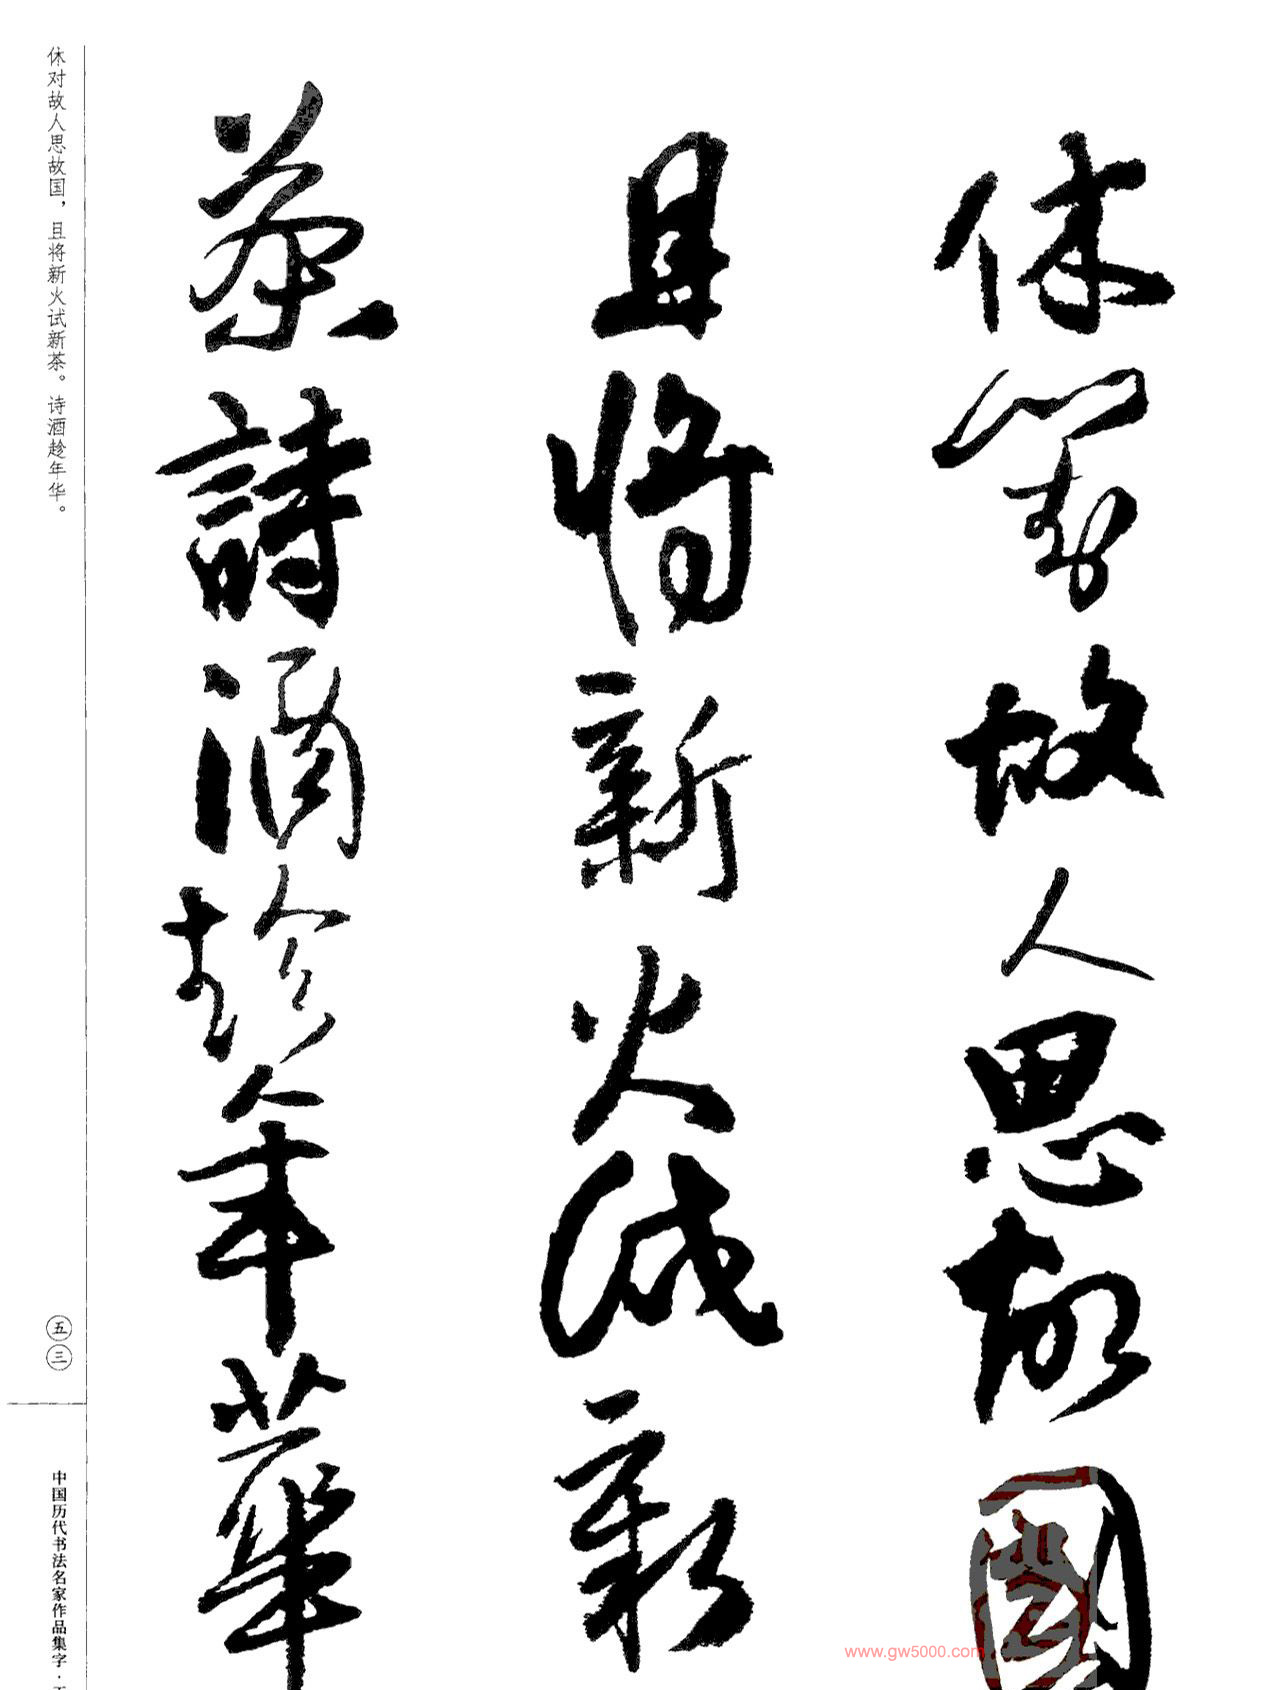 休對故人思故國
且將新火試新
茶詩酒趁年華
休对故人思故国，且将新火试新茶。诗酒趁年华。
五三
中国历代书法名家作品集字·
www.gw5000.com